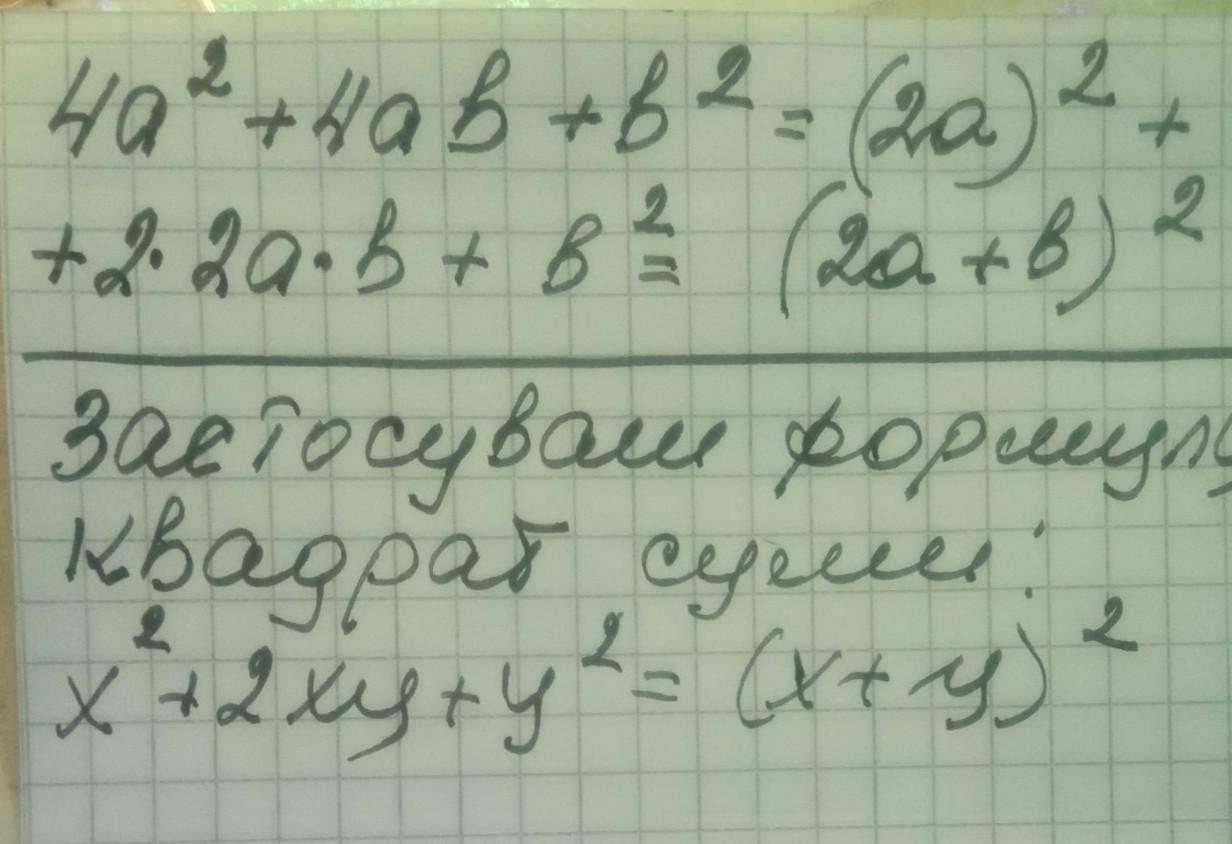 4a² + 4ab + b² = (2a)² +
+ 2 · 2a · b + b² = (2a + b)²
Застосували формулу
квадрат суми:
x² + 2xy + y² = (x + y)²